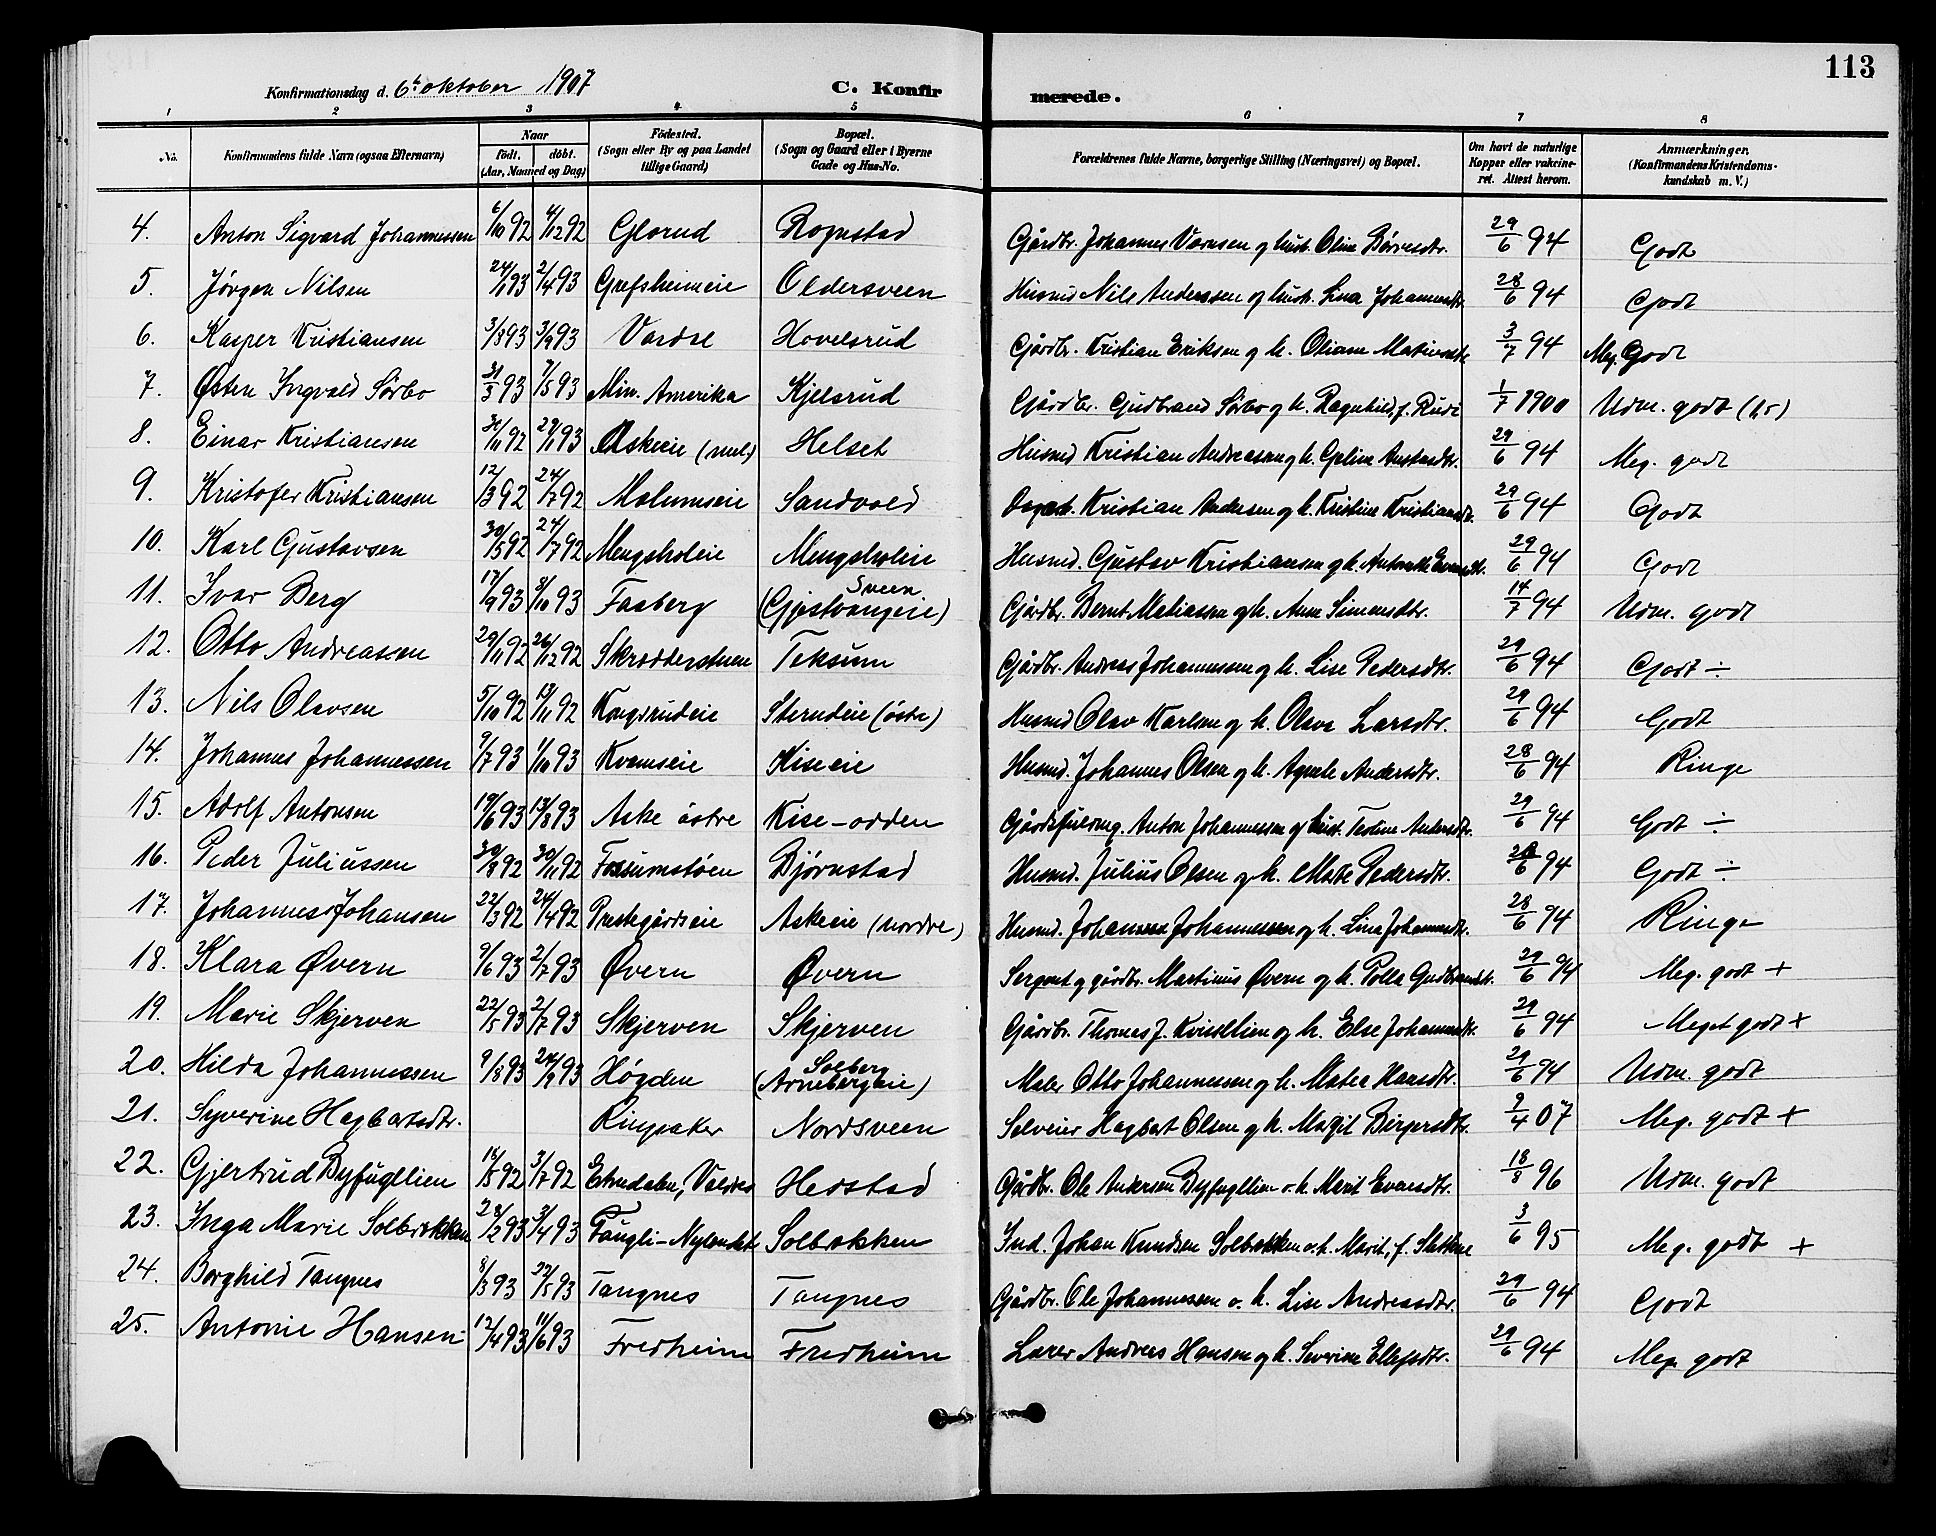 113
Konfirmationsdag d. 6te oktober 1907 C. Konfirmerede.
1 2 3 4 5 6 7 8
No. Konfirmandens fulde Navn (ogsaa Efternavn) Naar födt. döbt. (Aar, Maaned og Dag) Födested. (Sogn eller By og paa Landet tillige Gaard) Bopæl. (Sogn og Gaard eller i Byerne Gade og Hus-No. Forældrenes fulde Navne, borgerlige Stilling (Næringsvei) og Bopæl. Om havt de naturlige Kopper eller vakcineret. Attest herom. Anmærkninger, (Konfirmandens Kristendomskundskab m. V.)
4. Anton Sigvard Johannessen 6/10 92 4/12 92 Glorud Rognstad Gårdbr. Johannes Larsen og hust. Oline Børresdtr. 29/6 94 Godt
5. Jørgen Nilsen 24/1 93 2/4 93 Grefsheimeie Oldersveen Husmd Nils Anderssen og hust. Lina Johannesdtr 28/6 94 Godt
6. Kasper Kristiansen 3/8 93 3/9 93 Vardal Hovelsrud Gårdbr. Kristian Eriksen og h. Oliane 3/7 94 Meg. Godt
7. Østen Ingvald Sørbo 31/3 93 7/5 93 Min. Amerika Kjelsrud Gårdbr. Gudbrand Sørbo og h. Ragnhild, f. Rudi 1/7 1900 Udm. godt (h.5)
8. Einar Kristiansen 30/11 92 29/1 93 Askeie (mel) Helset Husmd Kristian Andreasen og h. Geline 29/6 94 Meg. godt
9. Kristofer Kristiansen 12/3 92 24/7 92 Malumseie Sandvold Kristian Andersen og h. Kristine Kristiansdtr. 29/6 94 Godt
10. Karl Gustavsen 30/5 92 24/7 92 Mengsholeie Mengsholeie Husmd. Gustav Kristiansen og h. Antonette Evensdtr. 29/6 94 Godt
11. Ivar Berg 17/9 93 8/10 93 Faaberg Sveen (Gjestvangeie) Gårdbr. Bernt Matiassen og h. Anne Simensdtr. 14/7 94 Udm. godt
12. Otto Andreassen 29/11 92 26/12 92 Skrædderstuen Teksum Gårdbr. Andreas Johannessen og h. Lise Pedersdtr. 29/6 94 Godt ÷
13. Nils Olavsen 5/10 92 13/11 92 Kongsrudeie Sterudeie (östr) Husmd Olav Karlsen og h. Olava Larsdtr. 29/6 94 Godt
14. Johannes Johannessen 9/7 93 1/10 93 Kvemseie Kiseeie Husmd. Johannes Olsen og h. Agnete Andersdtr. 28/6 94 Ringe
15. Adolf Antonsen 19/6 93 13/8 93 Aske östre Kise-odden Anton Johannessen og hust. Andersdtr. 29/6 94 Godt ÷
16. Peder Juliussen 30/8 92 30/11 92 Fossumstøen Bjørnstad Husmd. Julius Olsen og h. Mate Pedersdtr. 28/6 94 Godt ÷
17. Johannes Johansen 22/3 92 24/4 92 Prestegårdseie Askeeie (nordre) Husmd. Johannes Johannessen og h. Lina Johannesdtr. 28/6 94 Ringe
18. Klara Øvern 9/6 93 2/7 93 Øvern Øvern Sergeant og gårdbr. Martinus Øvern og h. Polla Gudbrandsdtr. 29/6 94 Meg. godt +
19. Marie Skjerven 22/5 93 2/7 93 Skjerven Skjerven Gårdbr. Thomas J. Kvisellien og h. Else Johannesdtr. 29/6 94 Meget godt +
20. Hilda Johannessen 9/8 93 24/9 93 Høgden Solberg (Arnebergeie) Maler Otto Johannessen og h. Matea Hansdtr. 29/6 94 Udm. godt
21. Syverine Hagbartsdtr. Ringsaker Nordsveen Selveier Hagbart Olsen og h. Magit Birgersdtr. 9/4 07 Meg. godt +
22. Gjertrud Byfugllien 16/5 92 3/7 92 Etnedalen, Valdres Hedstad Gårdbr. Ole Andersen Byfugllien o. h. Marit Evensdtr. 18/8 96 Udm. godt
23. Inga Marie Solbrekken 28/2 93 3/4 93 Tangli-Nylandet Solbækken Ind. Johan Knudsen Solbækken o. h. Marit, f. 3/6 95 Meg. godt +
24. Borghild Tangnes 8/3 93 22/5 93 Tangnes Tangnes Gårdbr. Ole Johannessen o. h. Lise Andreasdtr. 29/6 94 Godt
25. Antonie Hansen 12/4 93 11/6 93 Fredheim Fredheim Lærer Andreas Hansen og h. Severine Ellefsdtr. 29/6 94 Meg. godt